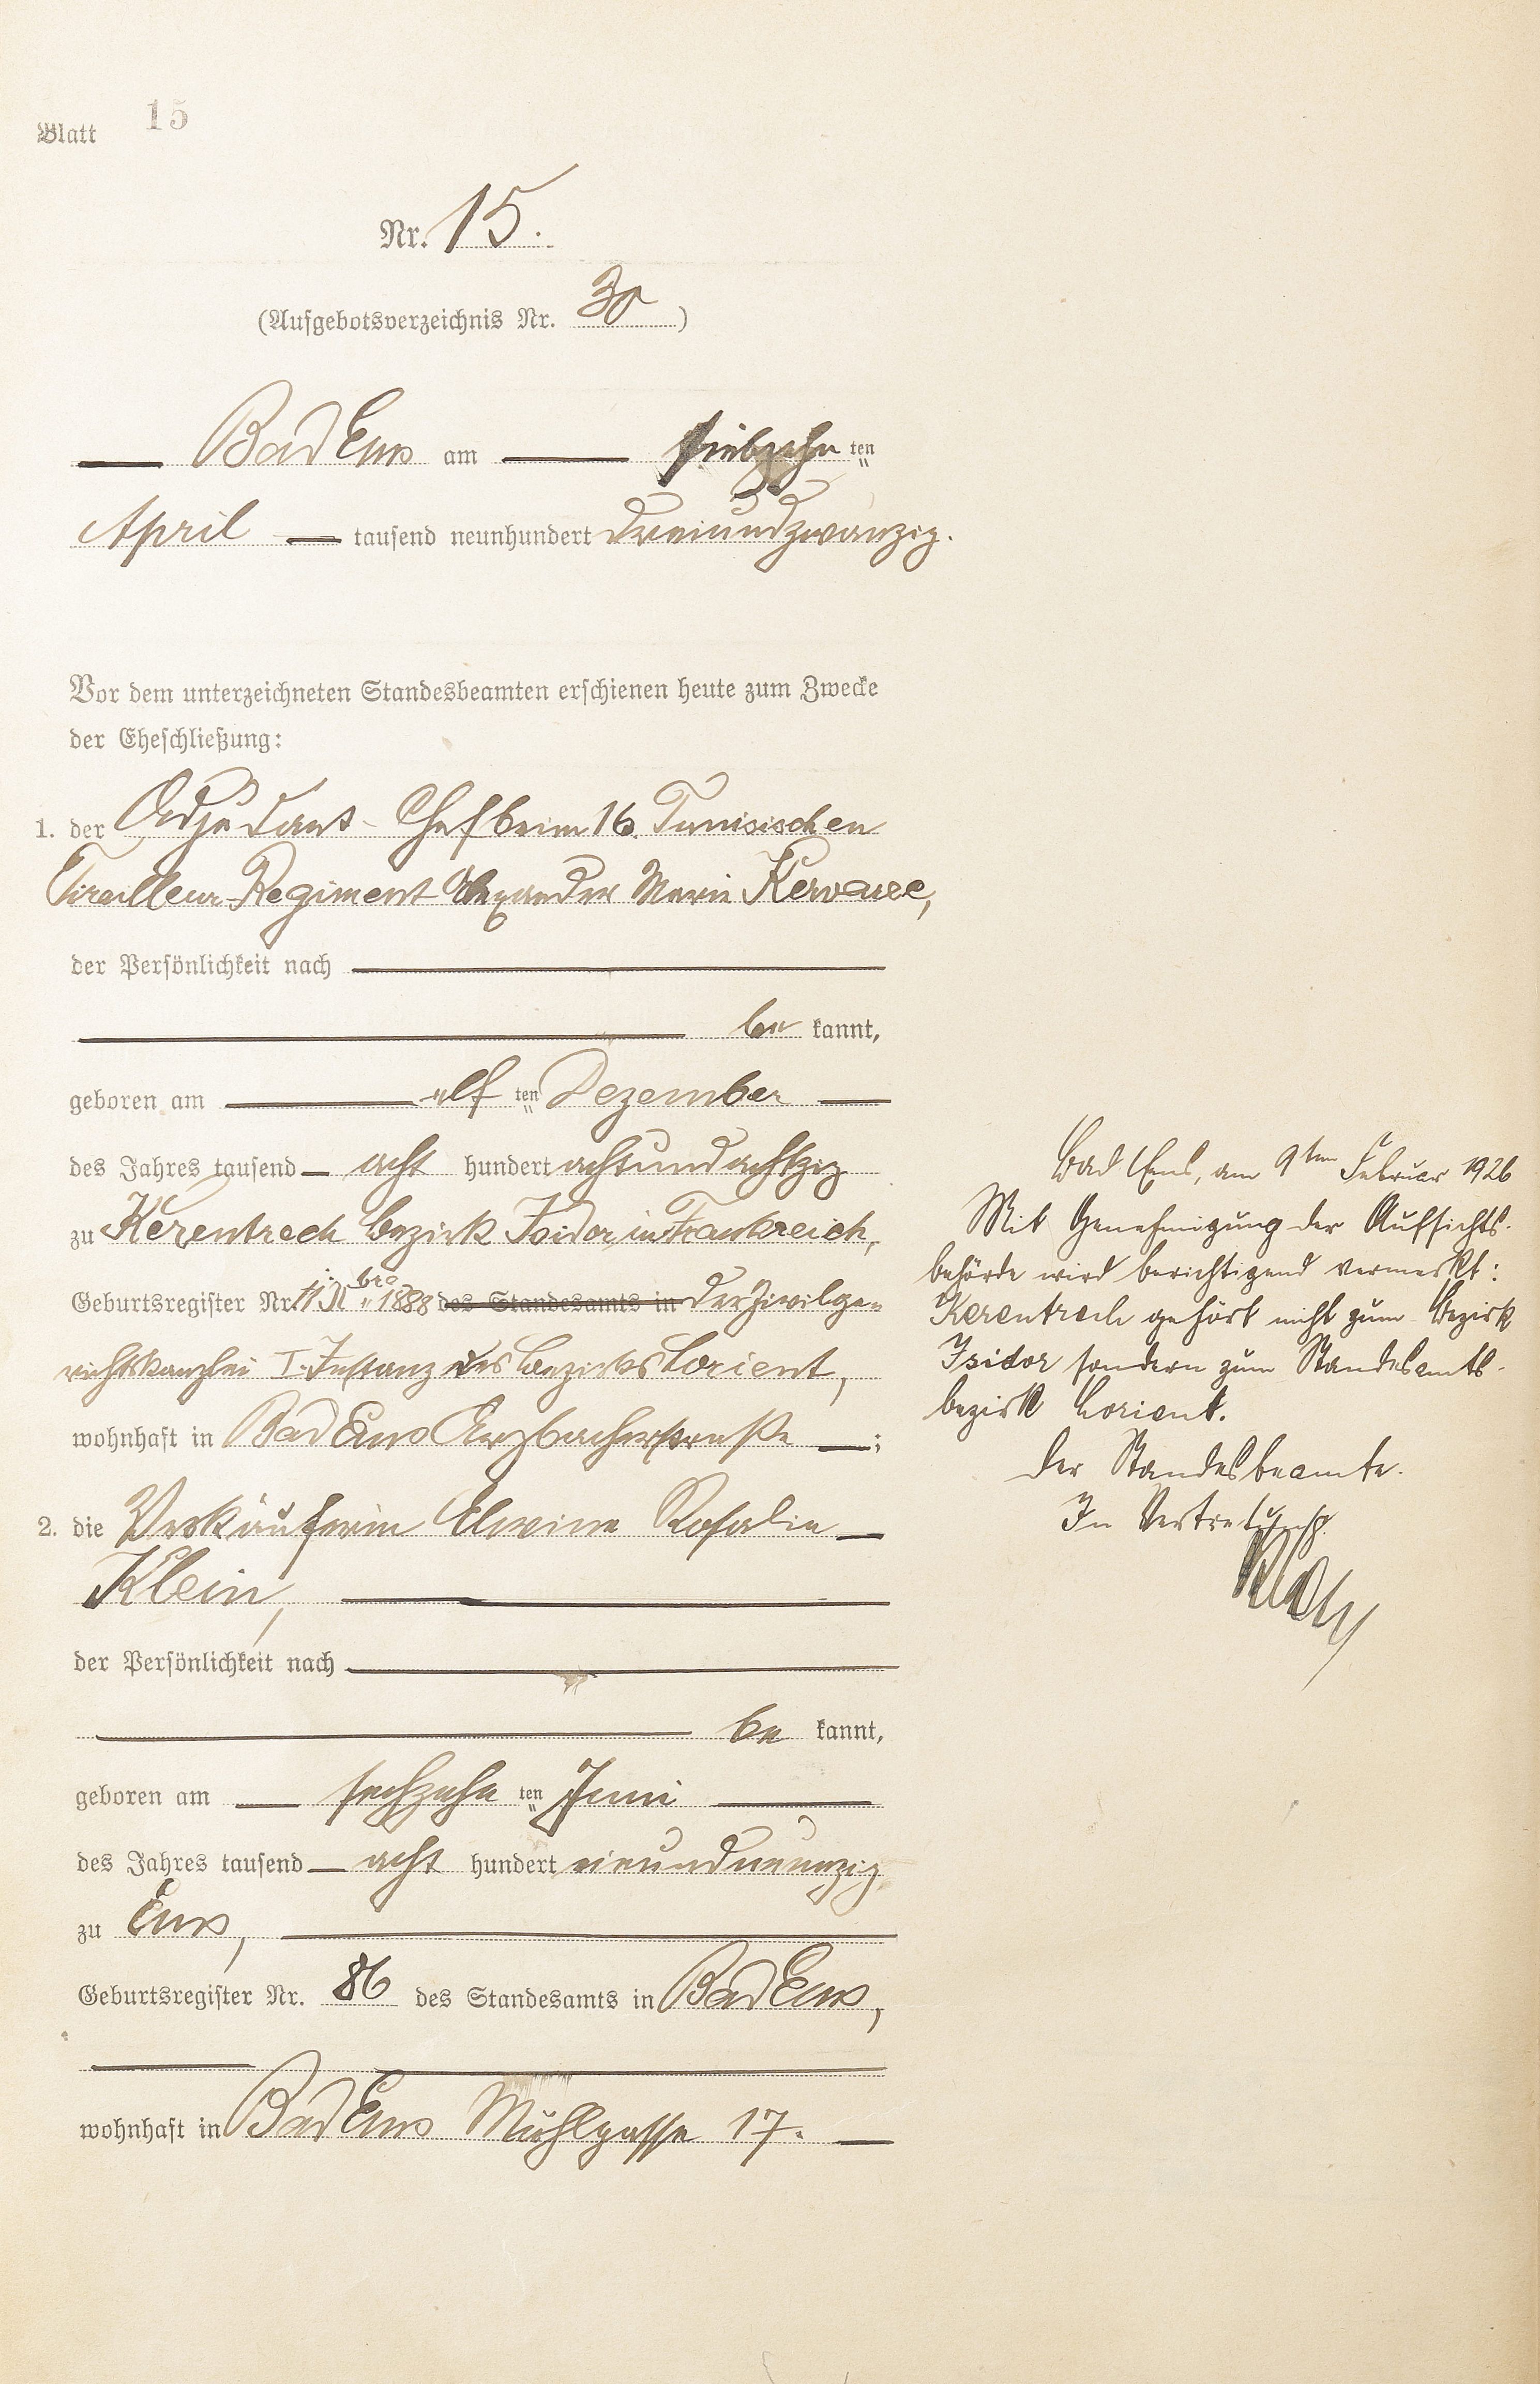 Blatt 15
Nr. 15.
(Aufgebotsverzeichnis Nr. 30)
Bad Ems am siebzehn ten
April tausend neunhundert dreiundzwanzig.
Vor dem unterzeichneten Standesbeamten erschienen heute zum Zwecke
der Eheschließung:
1. der Adjudant-Chef beim 16. Tunisischen
Tirailleur-Regiment Alexander Marie
der Persönlichkeit nach
be kannt,
geboren am elf ten Dezember
des Jahres tausend acht hundert achtundachtzig
zu Kerentrech Bezirk Isidor in Frankreich,
Geburtsregister Nr. 11 1888 des Standesamts in der Zivilge=
richtskanzlei I. Instanz des Bezirks Lorient,
wohnhaft in Bad Ems Arzbacherstraße ;
2. die Verkäuferin Elwine Rosalie
Klein,
der Persönlichkeit nach
be kannt,
geboren am sechzehn ten Juni
des Jahres tausend acht hundert einundneunzig
zu Ems,
Geburtsregister Nr. 86 des Standesamts in Bad Ems,
wohnhaft in Bad Ems Mühlgasse 17.
Bad Ems, am 9ten Februar 1926
Mit Genehmigung der Aufsichts-
behörde wird berichtigend vermerkt:
Kerentrech gehört nicht zum Bezirk
Isidor sondern zum Standesamts-
bezirk Lorient.
Der Standesbeamte.
In Vertretung.